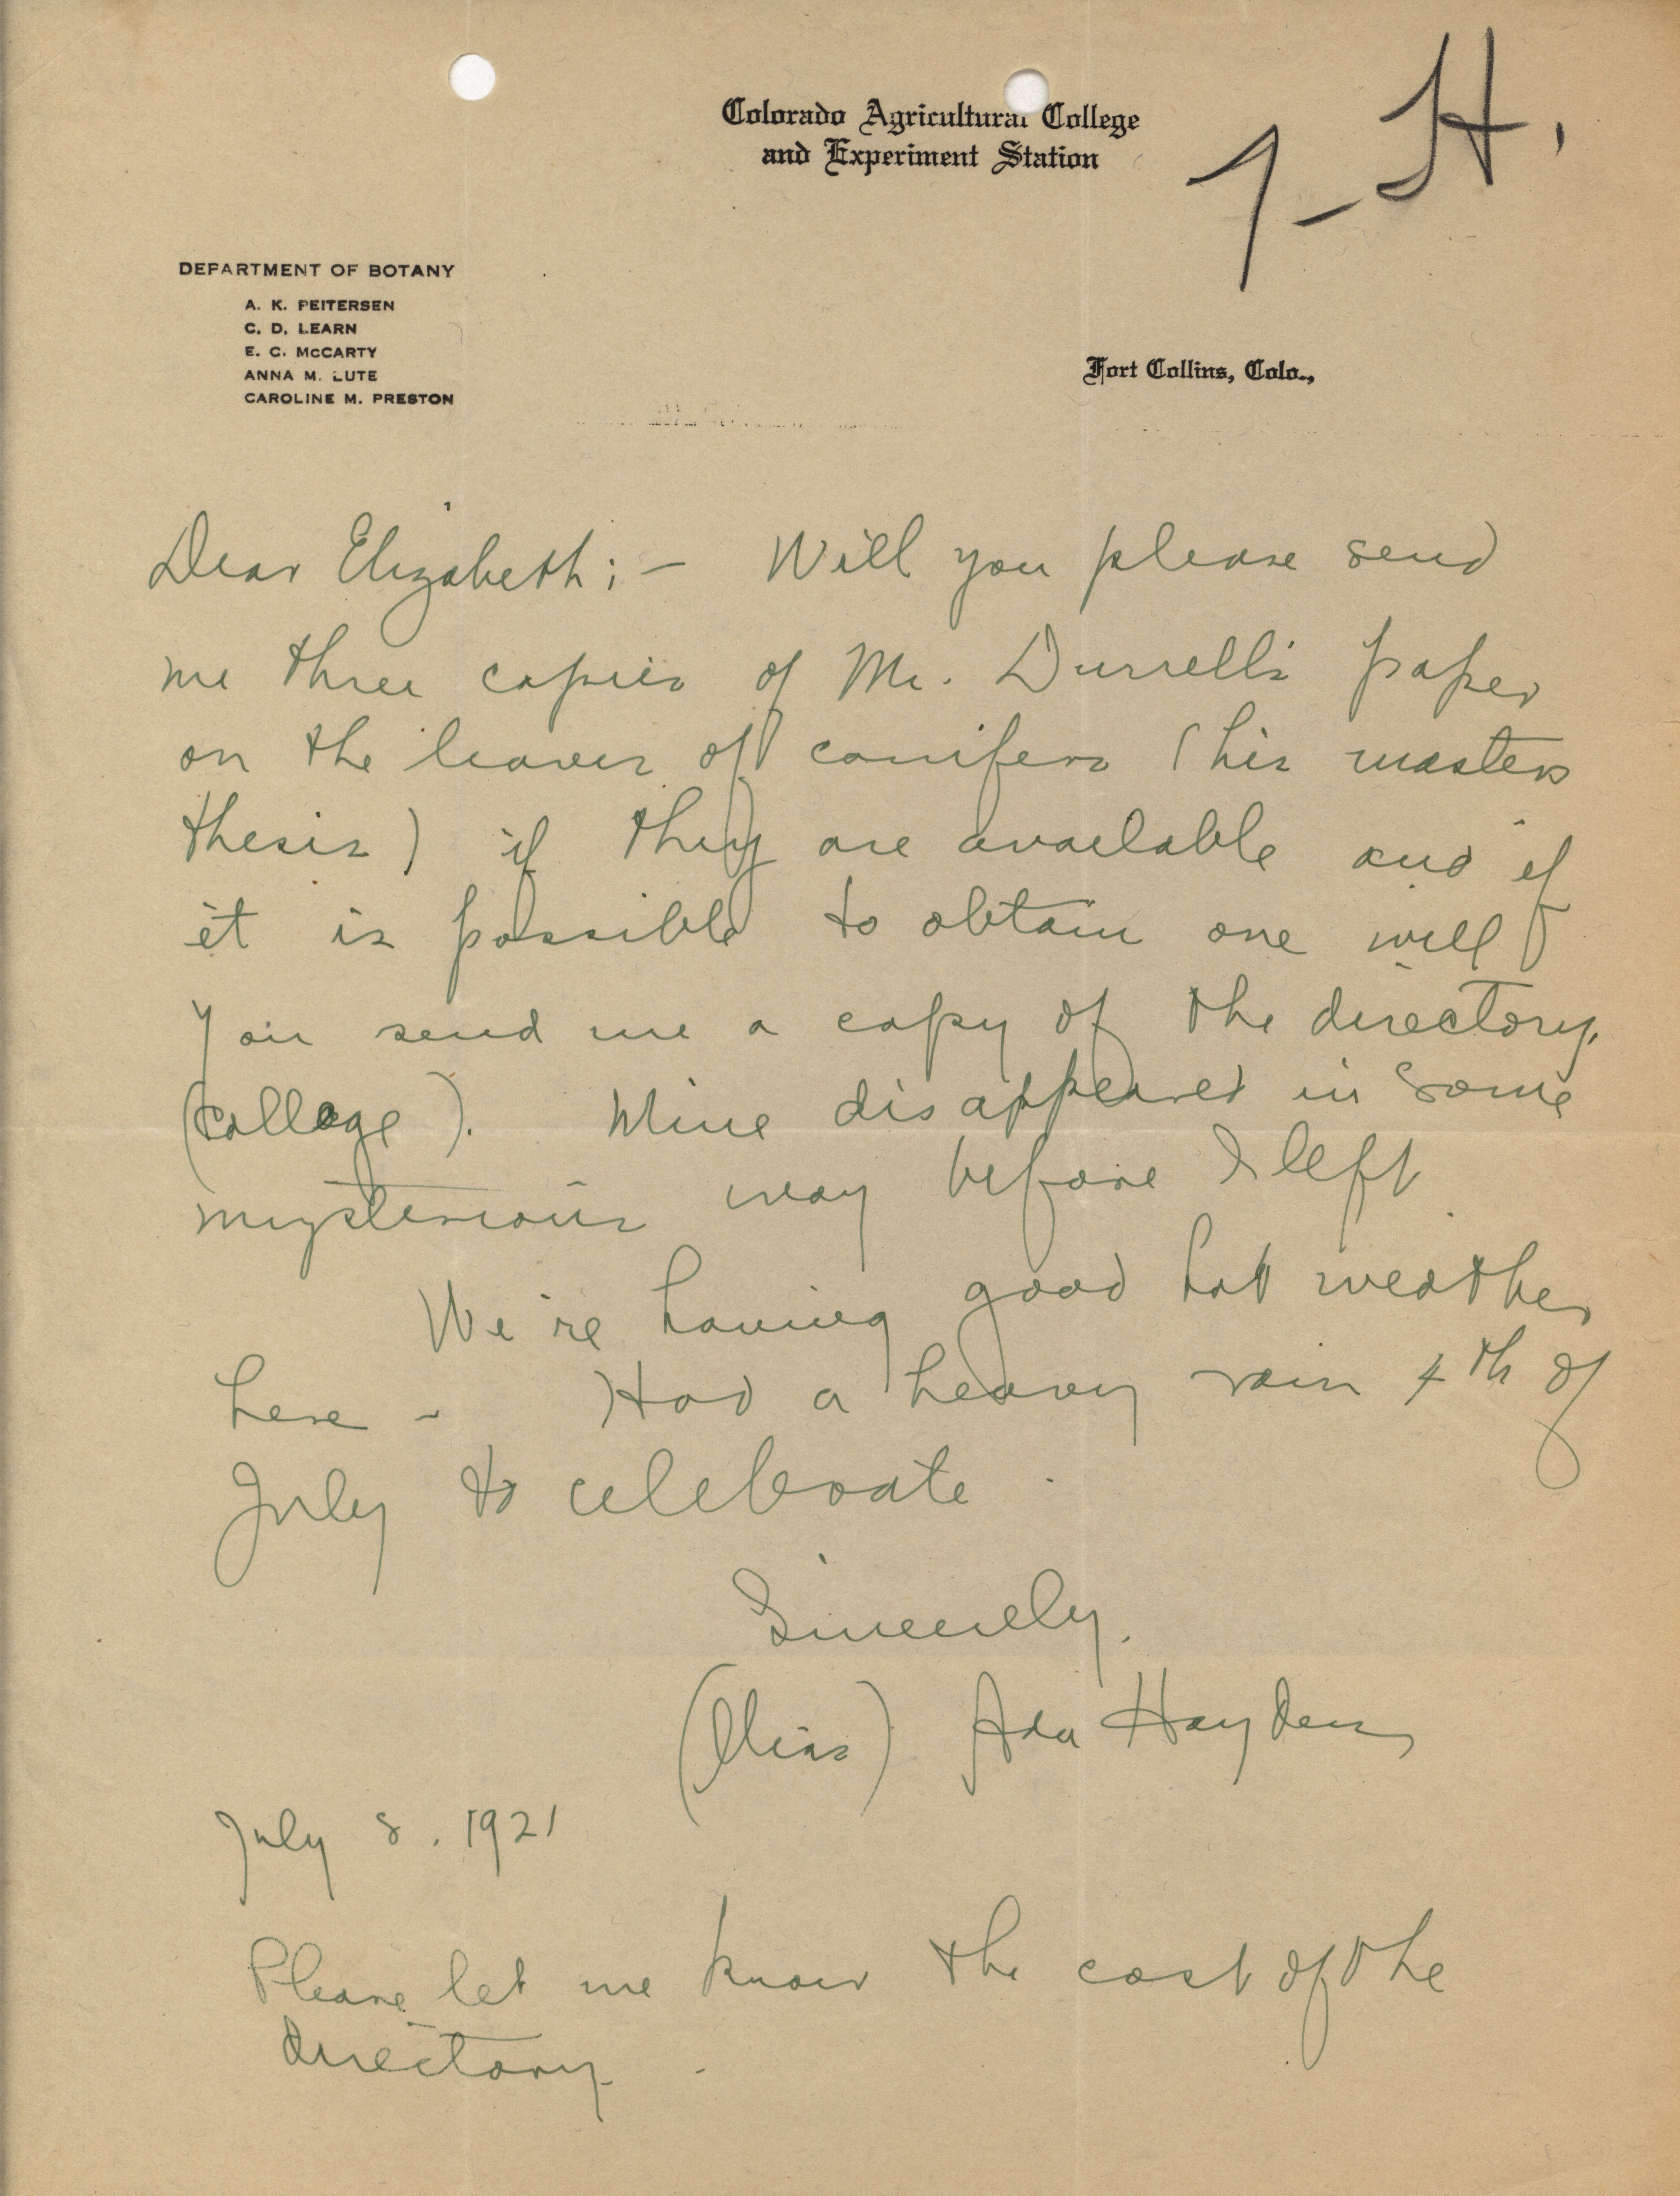 Colorado Agricultural College
and Experiment Station
DEPARTMENT OF BOTANY
A. K. PEITERSEN
C. D. LEARN
E. C. McCARTY
ANNA M. LUTE
CAROLINE M. PRESTON
Fort Collins, Colo.,
Dear Elizabeth; – Will you please send
me three copies of Mr. Durrell's paper
on the leaves of conifers (his masters
thesis) if they are available and if
it is possible to obtain one will
you send me a copy of the directory.
(college). Mine disappeared in some
mysterious way before I left
We're having good hot weather
here – Had a heavy rain 4th of
July to celebrate.
Sincerely,
(Miss) Ada Hayden
July 8. 1921
Please let me know the cost of the
directory.